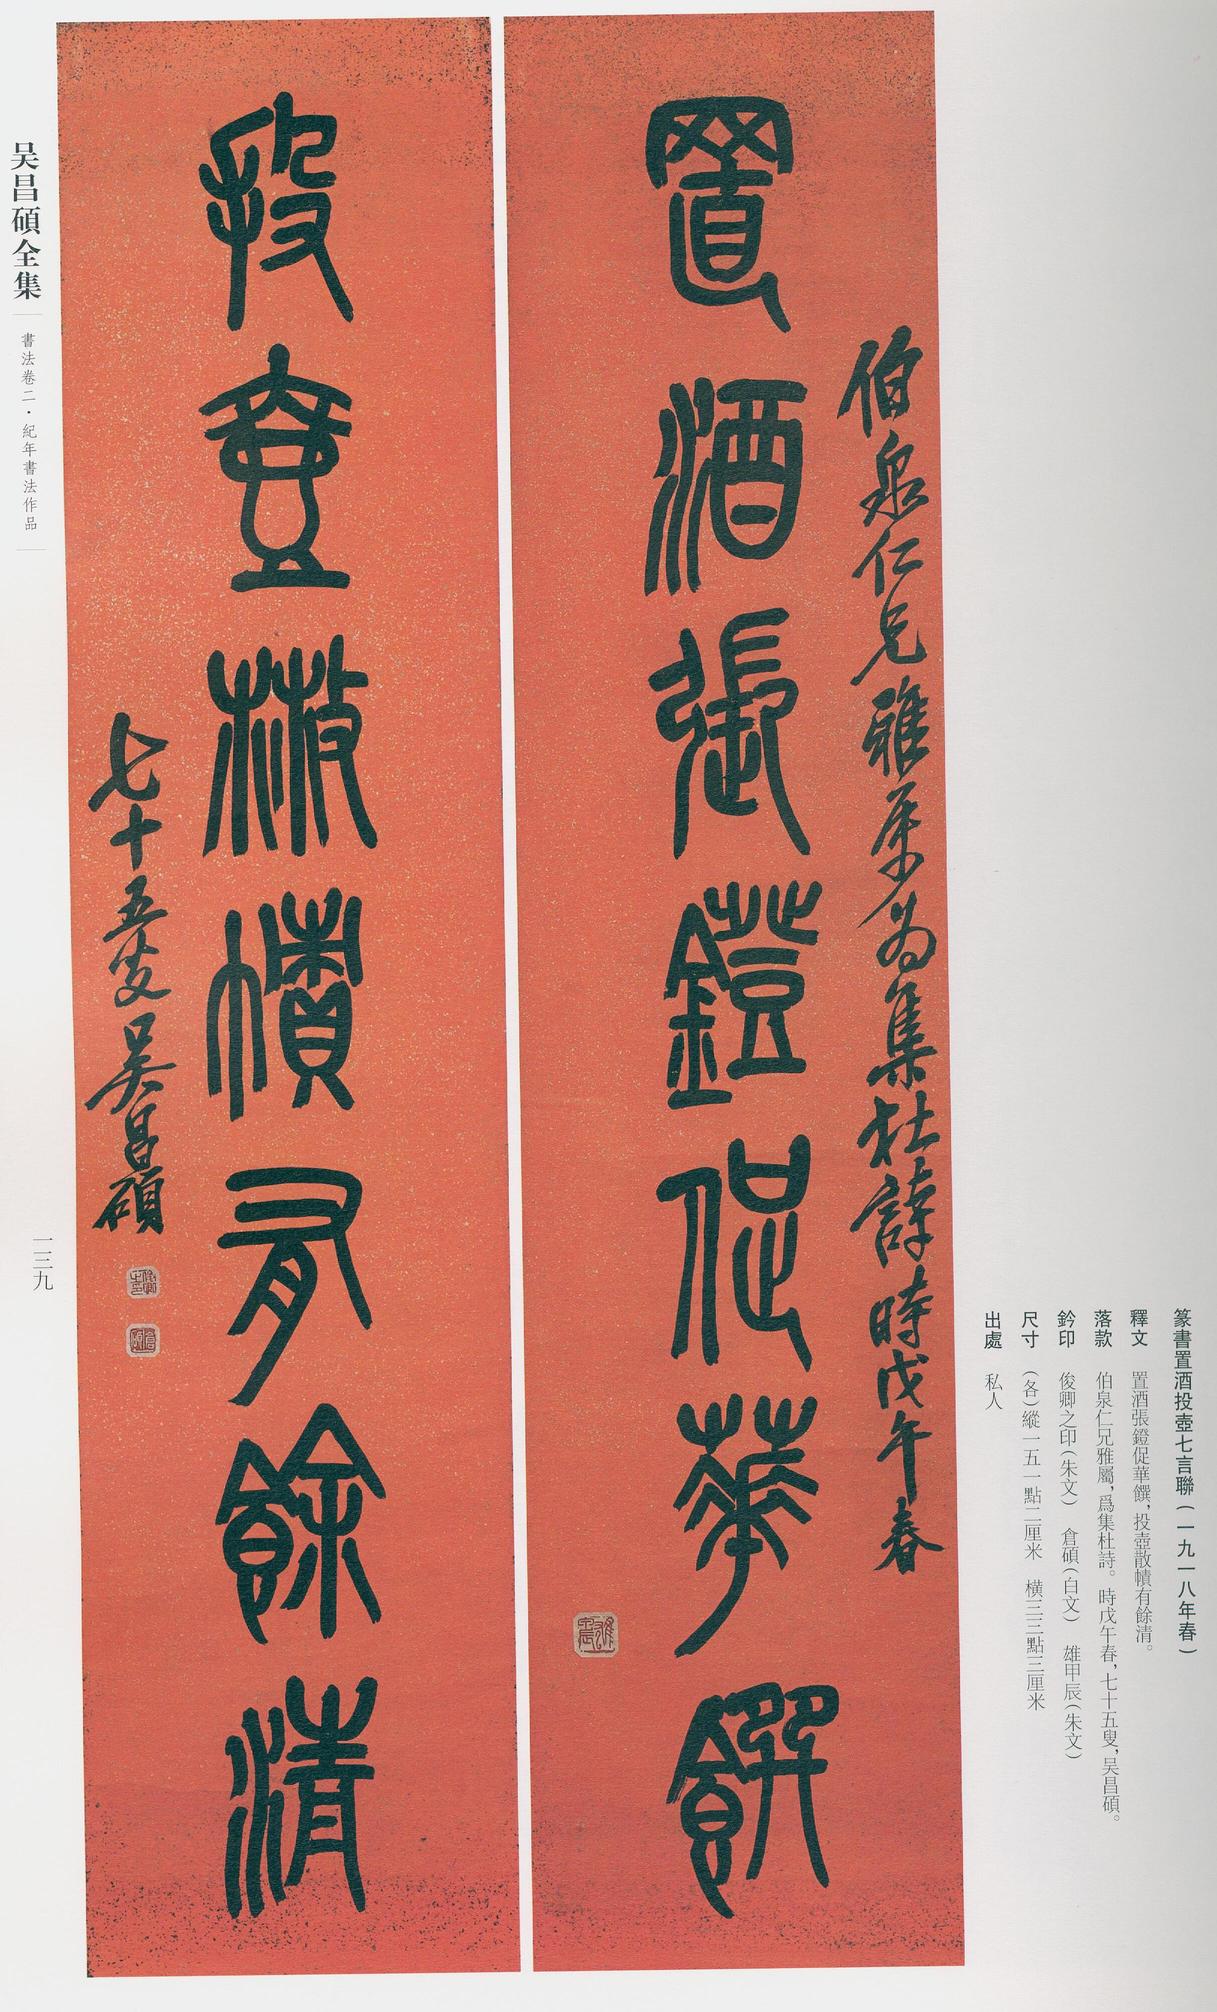 置酒張鐙促華饌
伯泉仁兄雅屬為集杜詩時戊午春
投壺散幘有餘清
七十五叟吳昌碩
篆書置酒投壺七言聯(一九一八年春)
釋文 置酒張鐙促華饌,投壺散幘有餘清。
落款 伯泉仁兄雅屬,爲集杜詩。時戊午春,七十五叟,吴昌碩。
鈐印 俊卿之印(朱文) 倉碩(白文) 雄甲辰(朱文)
尺寸 (各)縱一五一點二厘米 橫三三點三厘米
出處 私人
吴昌碩全集
書法卷二·紀年書法作品
一三九